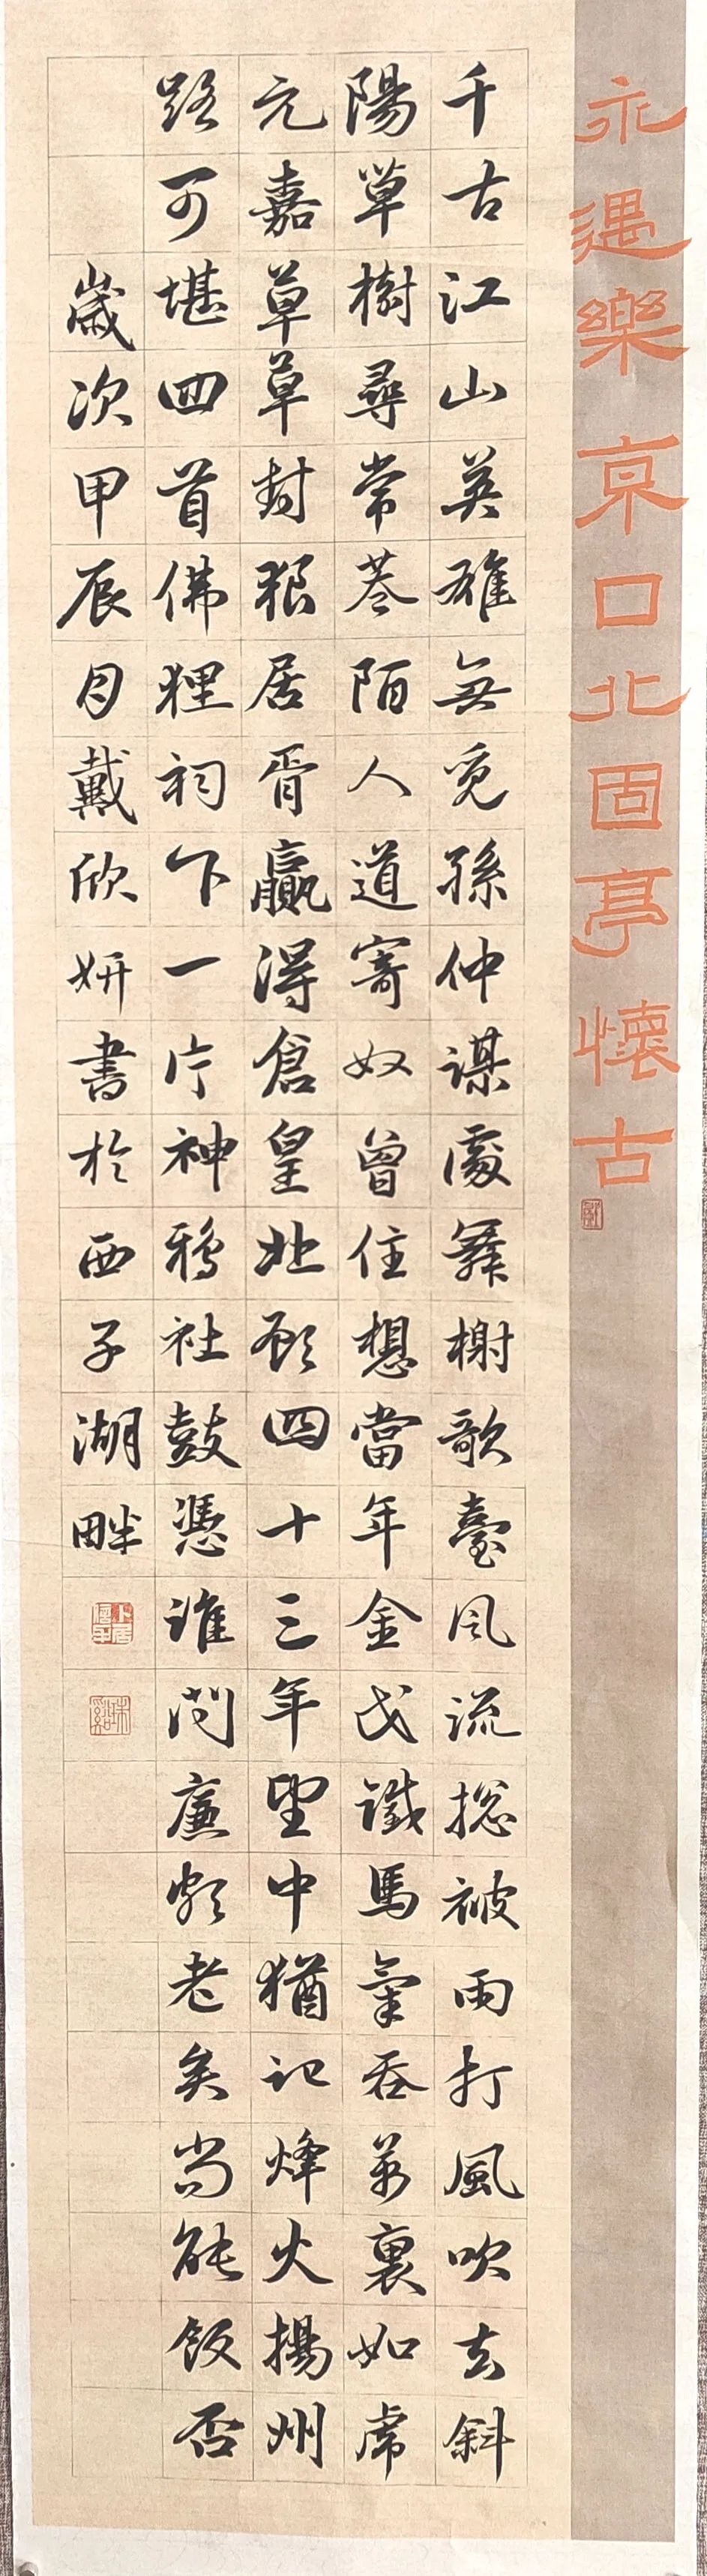 永遇樂 京口北固亭懷古
千古江山英雄無覓孫仲謀處舞榭歌臺風流摠被雨打風吹去斜
陽草樹尋常巷陌人道寄奴曾住想當年金戈鐵馬氣吞萬裏如虎
元嘉草草封狼居胥贏得倉皇北顧四十三年望中猶記烽火揚州
路可堪回首佛狸祠下一片神鴉社鼓憑誰問廉頗老矣尚能飯否
歲次甲辰月戴欣妍書於西子湖畔